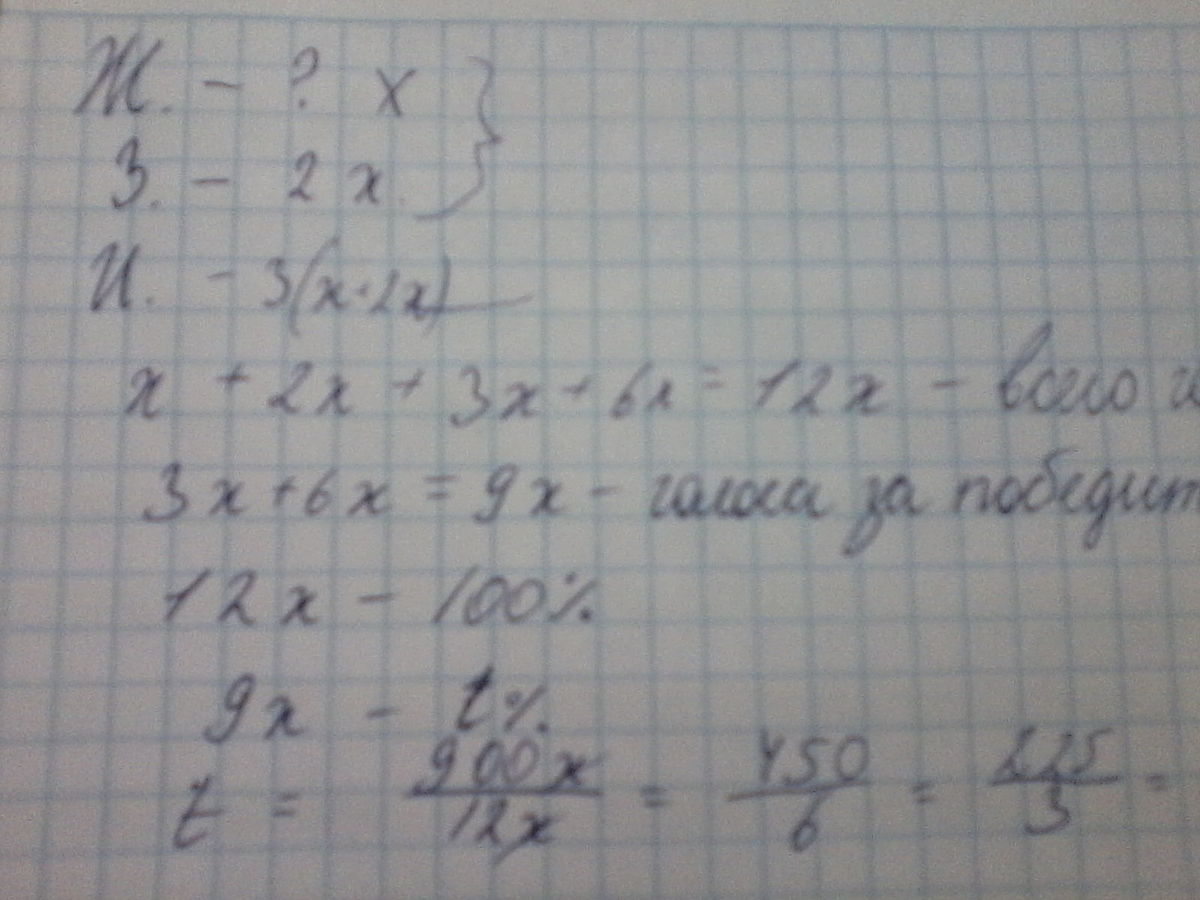 Ж. - ? x
З. - 2x
И. - 3(x+2x)
x + 2x + 3x + 6x = 12x - всего
3x+6x = 9x - голоса за победит
12x - 100%
9x - t%
t = 900x/12x = 450/6 = 225/3 =